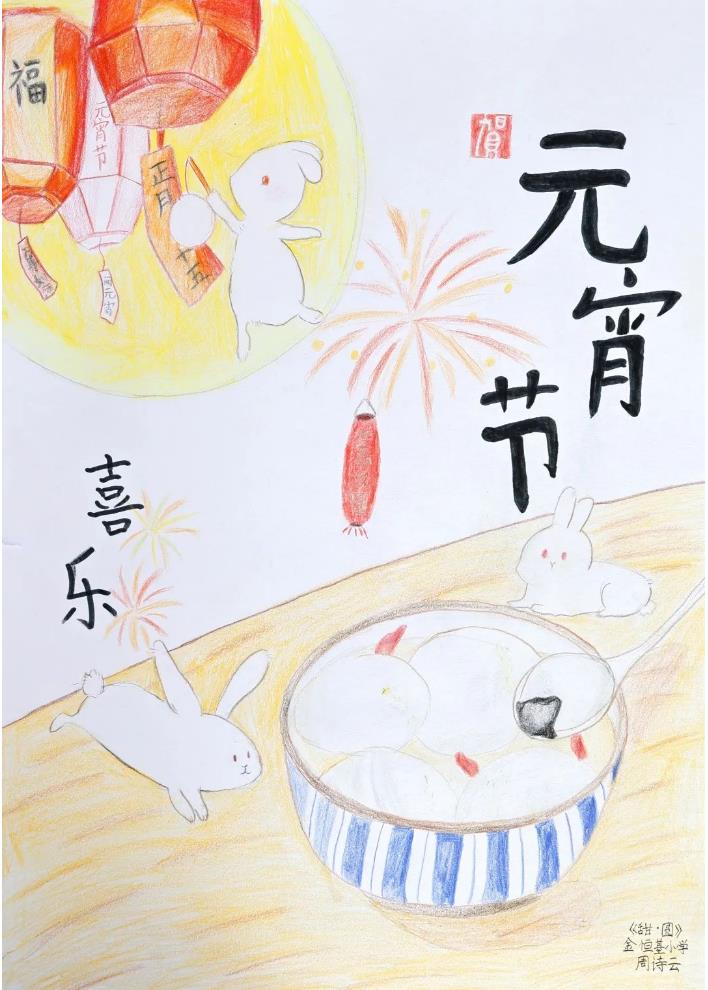 福
元宵节
正月十五
闹元宵
賀
元宵节
喜乐
《甜·圆》
金恒基小学
周诗云